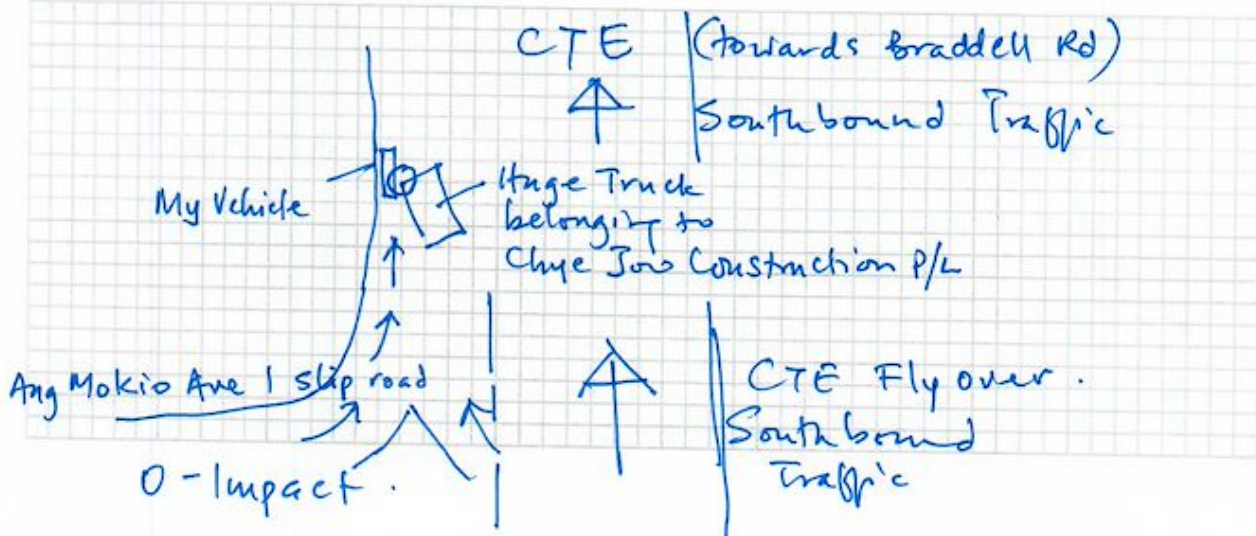 CTE (towards Braddell Rd)
Southbound Traffic
My Vehicle
Huge Truck
belonging to
Chye Joo Construction P/L
Ang Mokio Ave 1 slip road
CTE Flyover.
Southbound
Traffic
O - Impact.